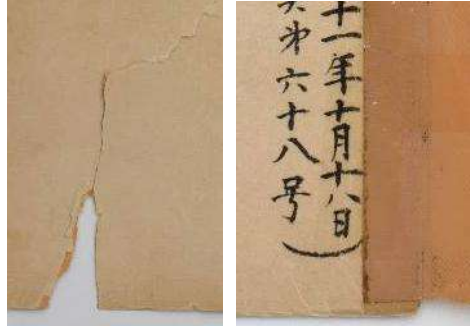 十一年十月十八日
第六十八号）